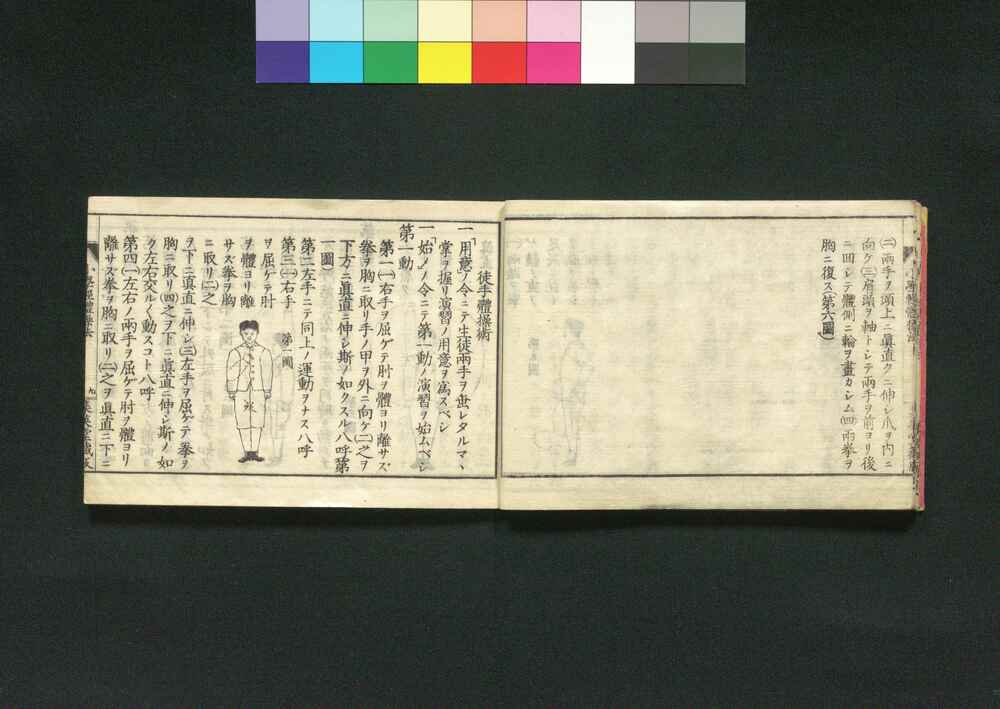 ㈡兩手ヲ頭上ニ眞直クニ伸シ爪ヲ內ニ
向ケ㈢肩頭ヲ軸トシテ兩手ヲ前ヨリ後
ニ回シテ體側ニ輪ヲ畫カシム㈣兩拳ヲ
胸ニ復ス(第六圖)
徒手體操術
一「用意」ノ令ニテ生徒兩手ヲ埀レタルマヽ
掌ヲ握リ演習ノ用意ヲ爲スベシ
一「始メ」ノ令ニテ第一動ノ演習ヲ始ムベシ
第一動
第一㈠右手ヲ屈ゲテ肘ヲ體ヨリ離サズ
拳ヲ胸ニ取リ手ノ甲ヲ外ニ向ケ㈡之ヲ
下方ニ眞直ニ伸シ斯ノ如クスル八呼(第
一圖)
第二左手ニテ同上ノ運動ヲナス八呼
第三㈠右手
ヲ屈ゲテ肘
ヲ體ヨリ離
サズ拳ヲ胸
ニ取リ㈡之
ヲ下ニ眞直ニ伸シ㈢左手ヲ屈ゲテ拳ヲ
胸ニ取リ㈣之ヲ下ニ眞直ニ伸シ斯ノ如
ク左右交ル〱動スコト八呼
第四㈠左右ノ兩手ヲ屈ゲテ肘ヲ體ヨリ
離サズ拳ヲ胸ニ取リ㈡之ヲ眞直ニ下ニ
第一圖